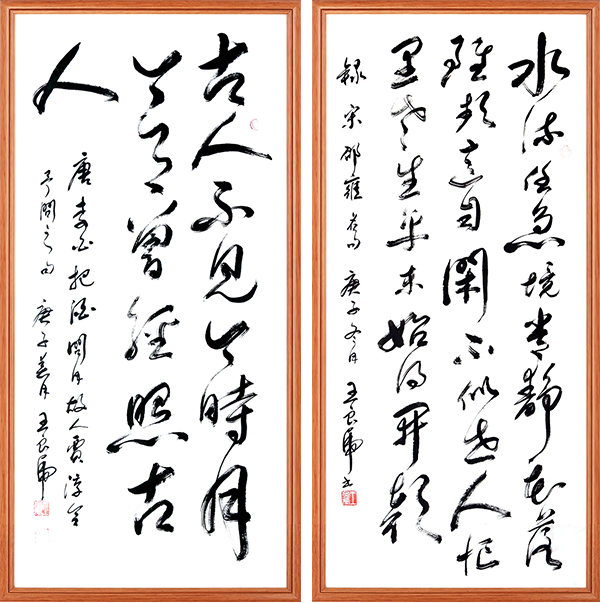 水流任急境常靜花落
雖頻意自閑不似世人忙
里老生平未始得開顏
録宋邵雍句 庚子冬月 王良虎書
古人不見今時月
今月曾經照古
人
唐李白把酒問月故人賈淳令
予問之句 庚子 月 王良虎